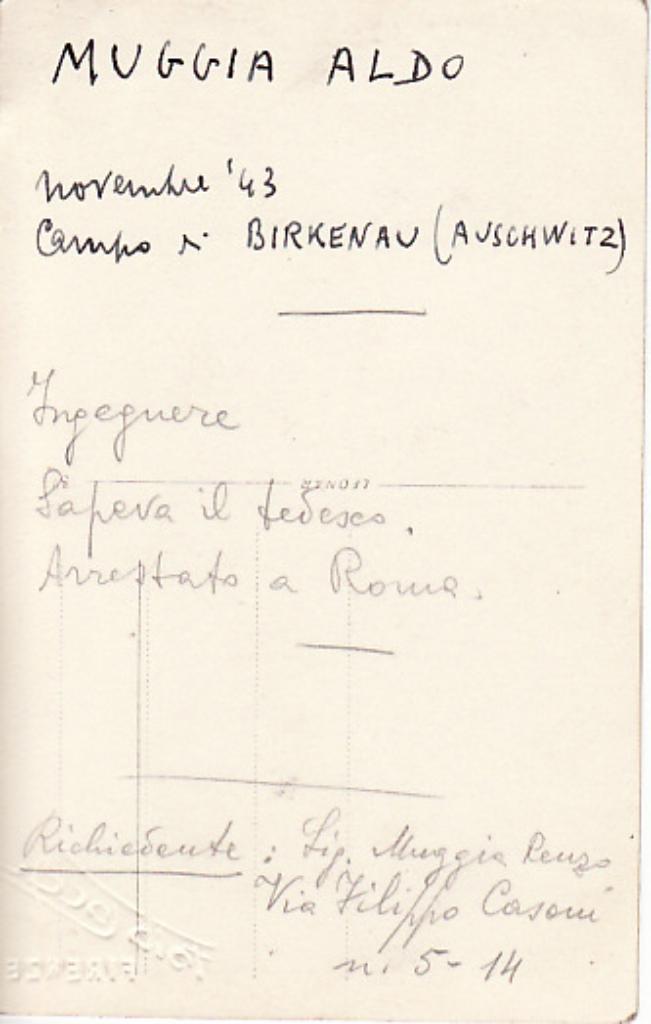 MUGGIA ALDO
novembre '43
Campo di BIRKENAU (AUSCHWITZ)
Ingegnere
Sapeva il tedesco.
Arrestato a Roma.
Richiedente : Sig. Muggia Renzo
Via Filippo Casoni
n. 5 - 14
FIRENZE